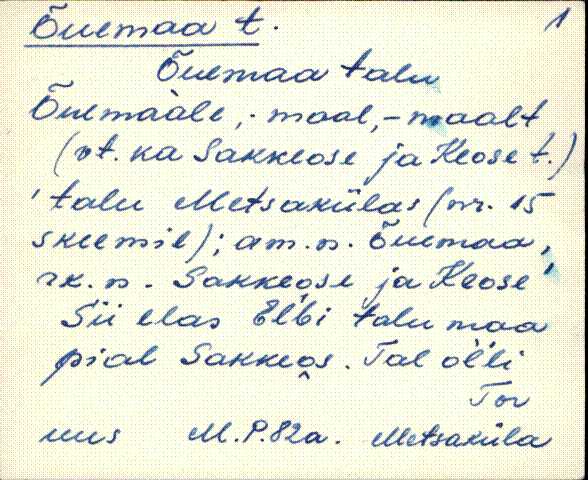 Õuemaa t. 1
Õuemaa talu
Õuemaàle, -maal, -maalt
(vt. ka Sakkeose ja Keose t.)
'talu Metsakülas (nr. 15
skeemil); am.n. Õuemaa,
rk.n. Sakkeose ja Keose'
Sii elas Elbi talu maa
pial Sakkeos. Tal olli
Tor
uus M.P. 82a. Metsaküla